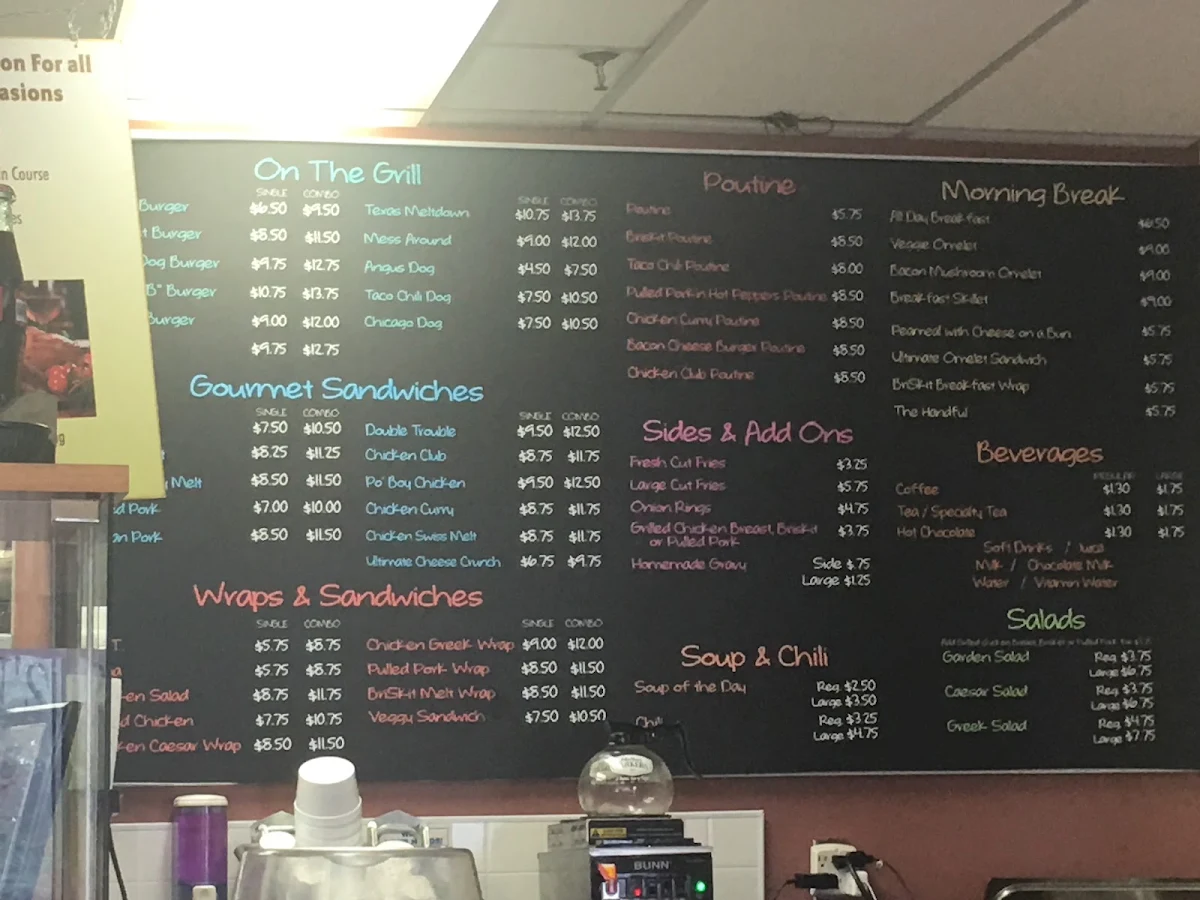 on For all
asions
n Course
On The Grill
SINGLE COMBO
Burger $6.50 $9.50
t Burger $8.50 $11.50
Dog Burger $9.75 $12.75
B" Burger $10.75 $13.75
Burger $9.00 $12.00
$9.75 $12.75
SINGLE COMBO
Texas Meltdown $10.75 $13.75
Mess Around $9.00 $12.00
Angus Dog $4.50 $7.50
Taco Chili Dog $7.50 $10.50
Chicago Dog $7.50 $10.50
Gourmet Sandwiches
SINGLE COMBO
$7.50 $10.50
$8.25 $11.25
Melt $8.50 $11.50
d Pork $7.00 $10.00
an Pork $8.50 $11.50
SINGLE COMBO
Double Trouble $9.50 $12.50
Chicken Club $8.75 $11.75
Po' Boy Chicken $9.50 $12.50
Chicken Curry $8.75 $11.75
Chicken Swiss Melt $8.75 $11.75
Ultimate Cheese Crunch $6.75 $9.75
Wraps & Sandwiches
SINGLE COMBO
T. $5.75 $8.75
a $5.75 $8.75
en Salad $8.75 $11.75
d Chicken $7.75 $10.75
ken Caesar Wrap $8.50 $11.50
SINGLE COMBO
Chicken Greek Wrap $9.00 $12.00
Pulled Pork Wrap $8.50 $11.50
BriSkit Melt Wrap $8.50 $11.50
Veggy Sandwich $7.50 $10.50
Poutine
Poutine $5.75
Briskit Poutine $8.50
Taco Chili Poutine $8.00
Pulled Pork n Hot Peppers Poutine $8.50
Chicken Curry Poutine $8.50
Bacon Cheese Burger Poutine $8.50
Chicken Club Poutine $8.50
Sides & Add Ons
Fresh Cut Fries $3.25
Large Cut Fries $5.75
Onion Rings $4.75
Grilled Chicken Breast, Briskit $3.75
or Pulled Pork
Homemade Gravy Side $.75
Large $1.25
Soup & Chili
Soup of the Day Reg. $2.50
Large $3.50
Chili Reg. $3.25
Large $4.75
Morning Break
All Day Breakfast $6.50
Veggie Omelet $9.00
Bacon Mushroom Omelet $9.00
Breakfast Skillet $9.00
Peameal with Cheese on a Bun $5.75
Ultimate Omelet Sandwich $5.75
BriSkit Breakfast Wrap $5.75
The Handful $5.75
Beverages
REGULAR LARGE
Coffee $1.30 $1.75
Tea / Specialty Tea $1.30 $1.75
Hot Chocolate $1.30 $1.75
Soft Drinks / Juice
Milk / Chocolate Milk
Water / Vitamin Water
Salads
Garden Salad Reg. $3.75
Large $6.75
Caesar Salad Reg. $3.75
Large $6.75
Greek Salad Reg. $4.75
Large $7.75
BUNN